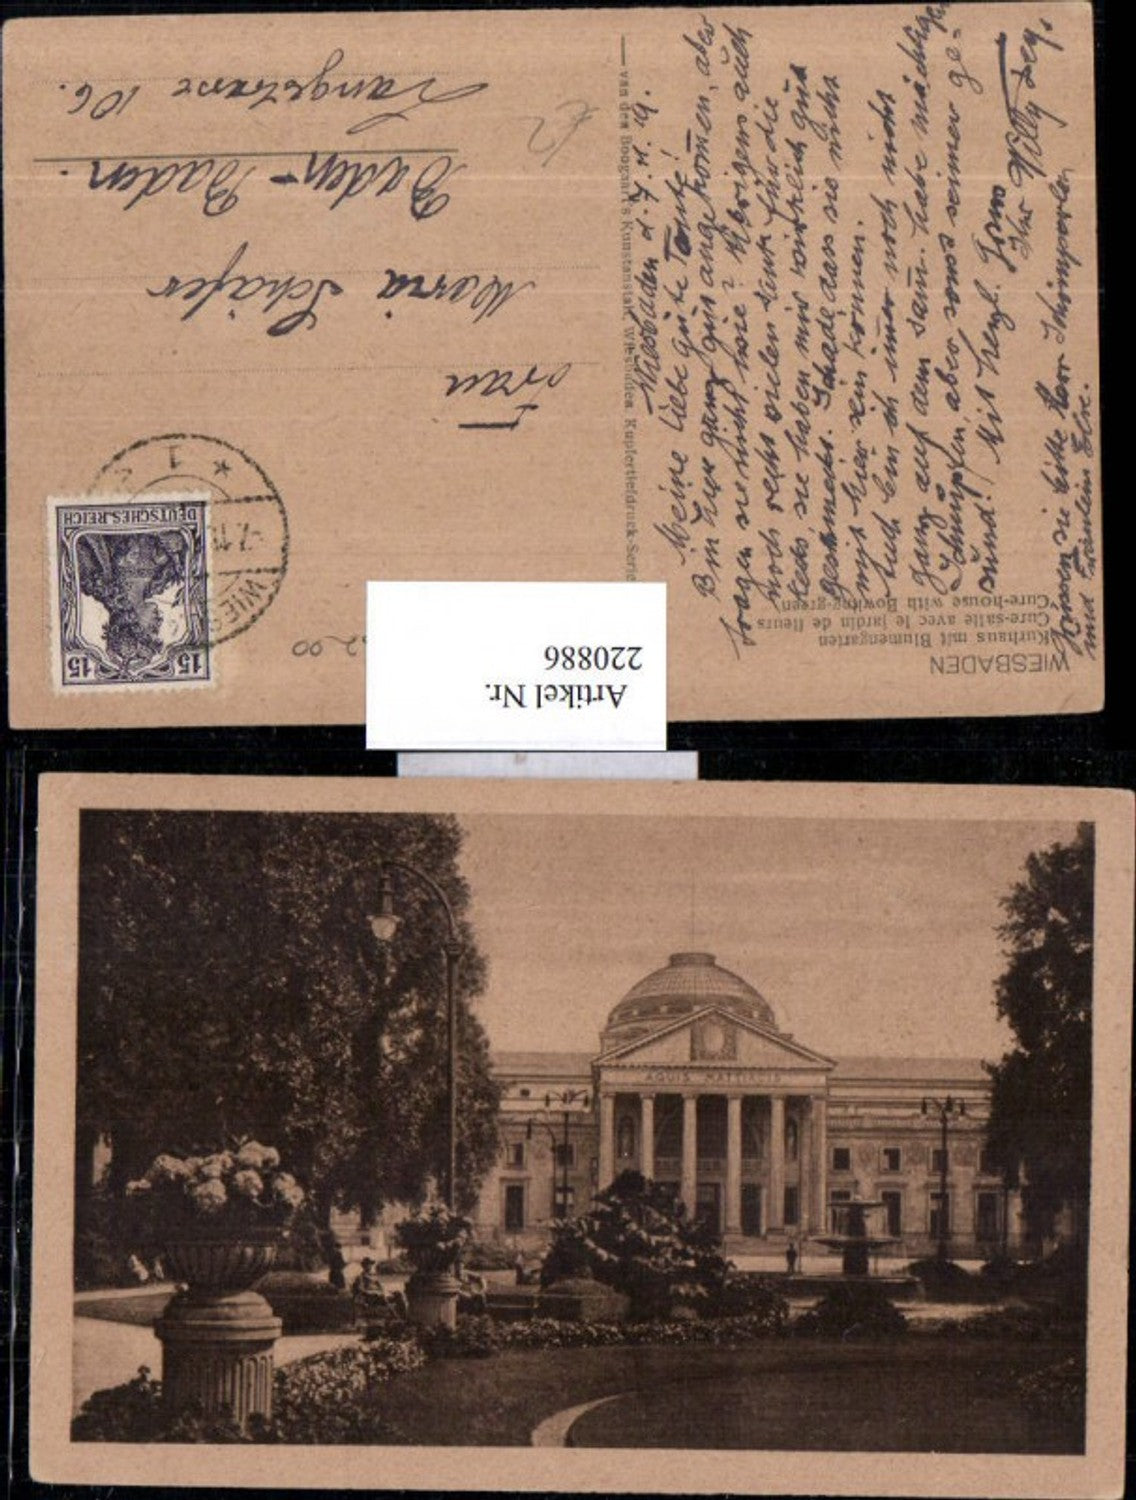 WIESBADEN
Kurhaus mit Blumengarten
Cure-salle avec le jardin de fleurs
Cure-house with Bowling-green
van den Boogart's Kunstanstalt, Wiesbaden Kupfertiefdruck-Serie
Wiesbaden d. 7. 11. 19.
Meine liebe gute Tante!
Bin zwar ganz gut angekommen, aber
fragen sie nicht wie? Übrigens auch
noch recht vielen Dank für die
Keks, sie haben mir wirklich gut
geschmeckt. Schade das sie nicht
mit hier sein können.
Auch bin ich immer noch nicht
ganz auf dem Damm. habe mächtigen
Schnupfen, aber sonst immer ge-
sund! Mit herzl. Gruss
Ihr Willy
Grüssen sie bitte Herr
und Fräulein Else.
DEUTSCHES REICH
15 15
WIESB
1
Frau
Maria Schäfer
Baden-Baden.
Langestrasse 106.
Artikel Nr.
220886
AQUIS MATTIACIS